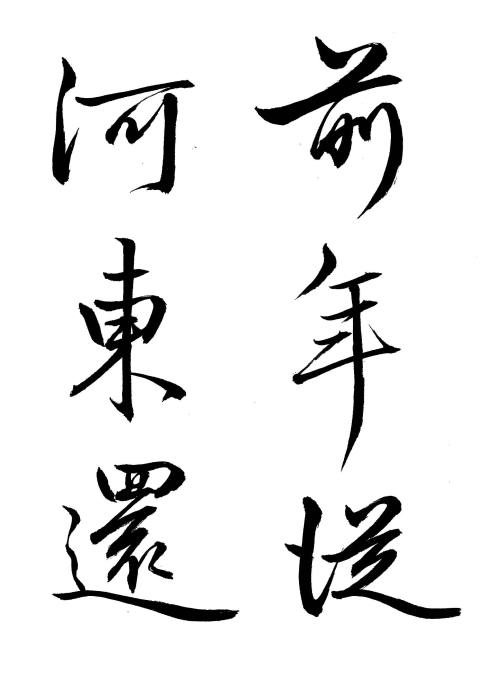 前年従
河東還